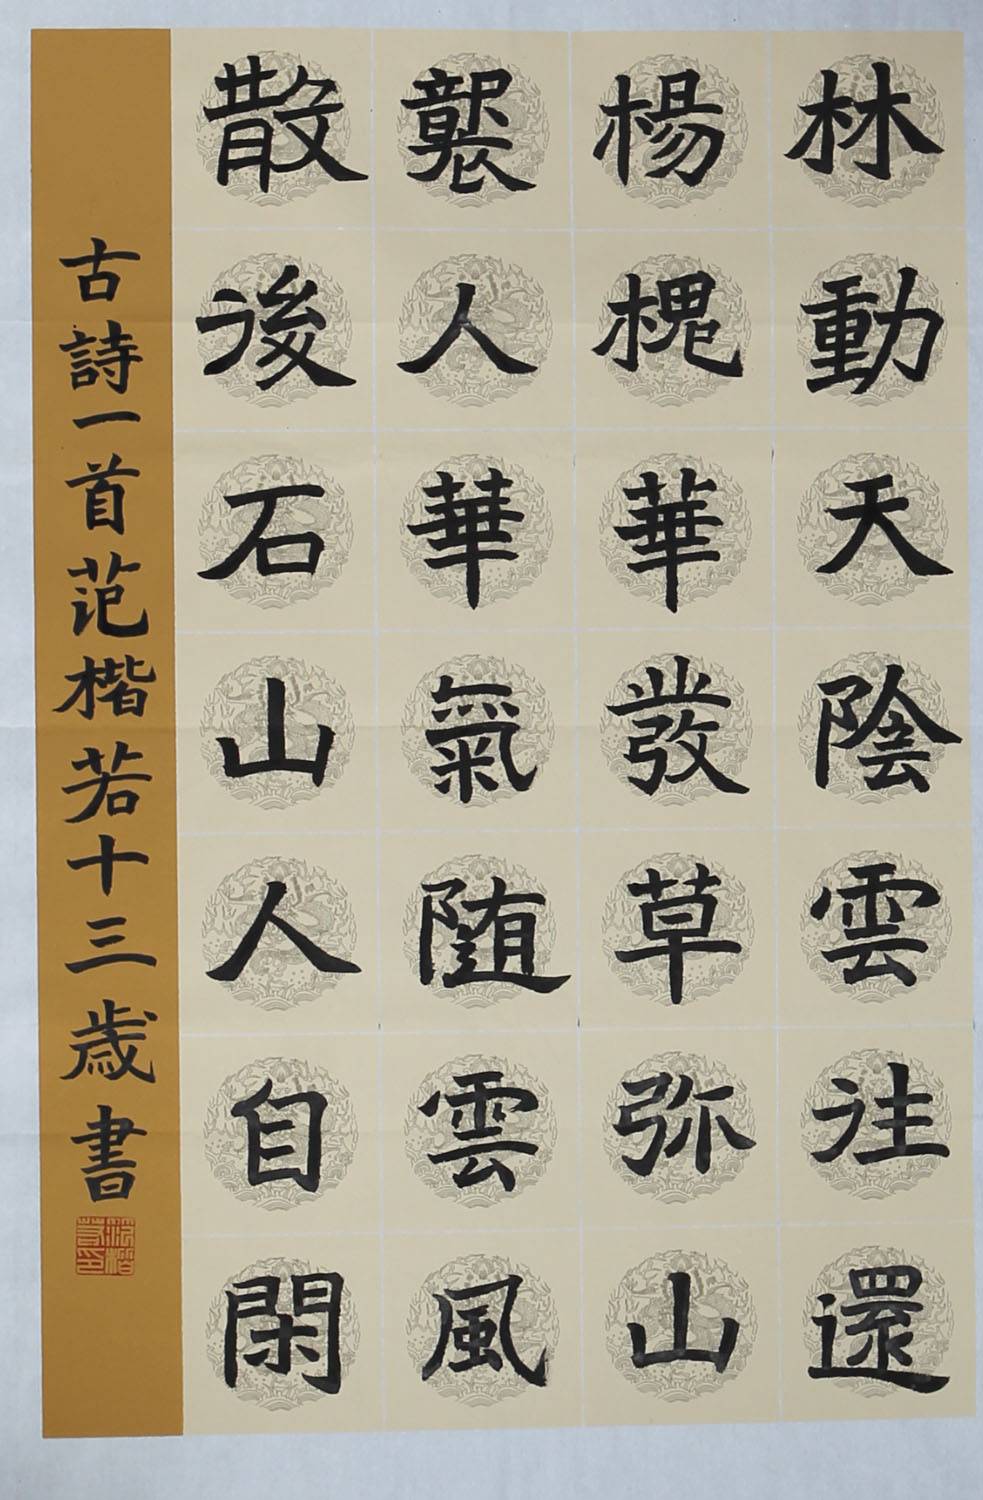 林動天陰雲注還
楊槐華發草弥山
襲人華氣随雲風
散後石山人自閑
古詩一首范楷若十三歲書